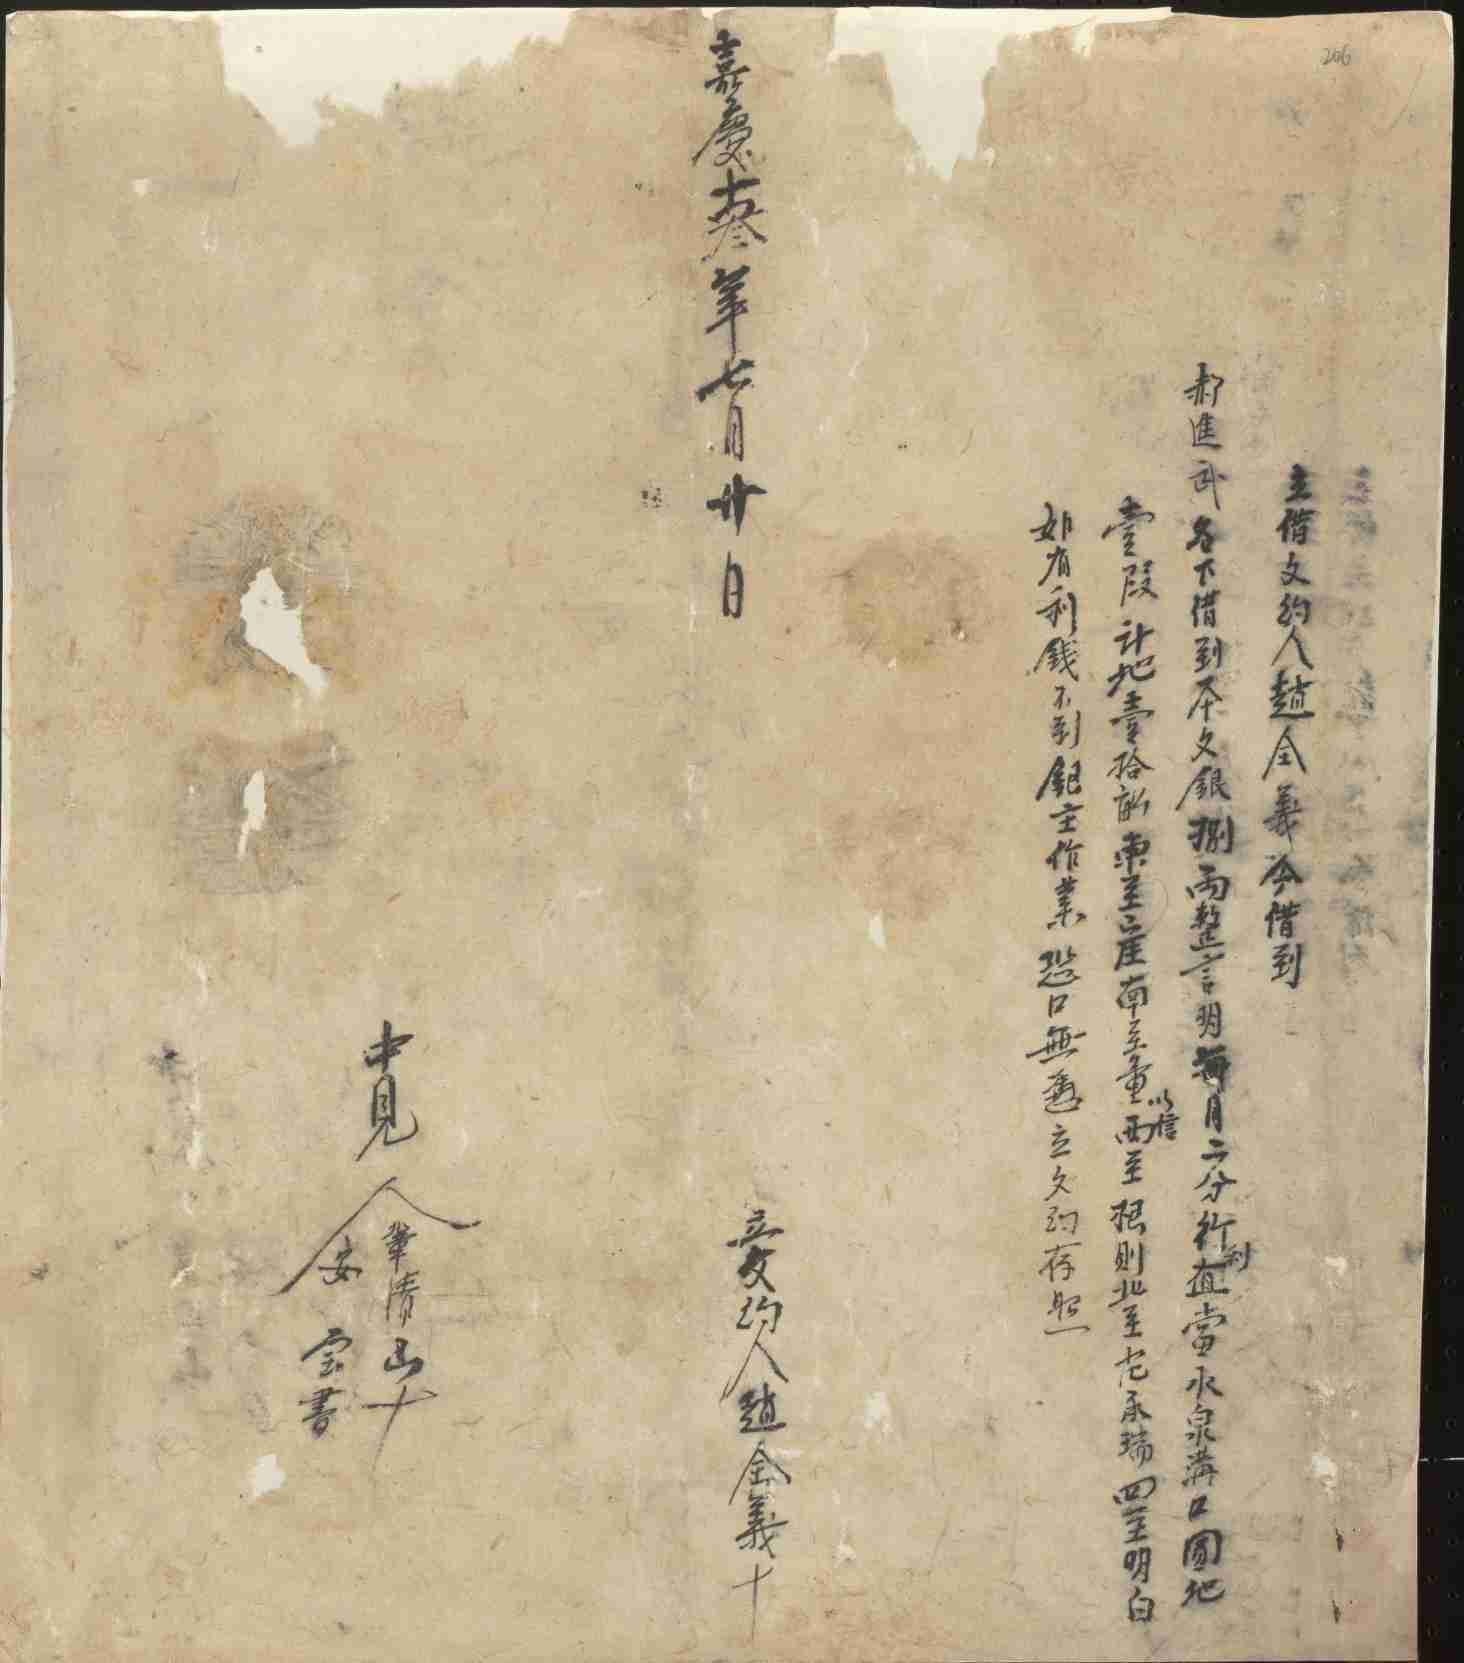 206
立借文約人趙全義今借到
郝進武名下借到本文銀捌兩整言明每月二分行利直當水泉溝口園地
壹段計地壹拾畝東至崖南至童西至根則北至北承瑞四至明白
如有利錢不到銀主作業恐口無憑立文約存照
以信
嘉慶十叁年七月廿日
立文約人趙全義十
中見人
鞏清山十
安宝書